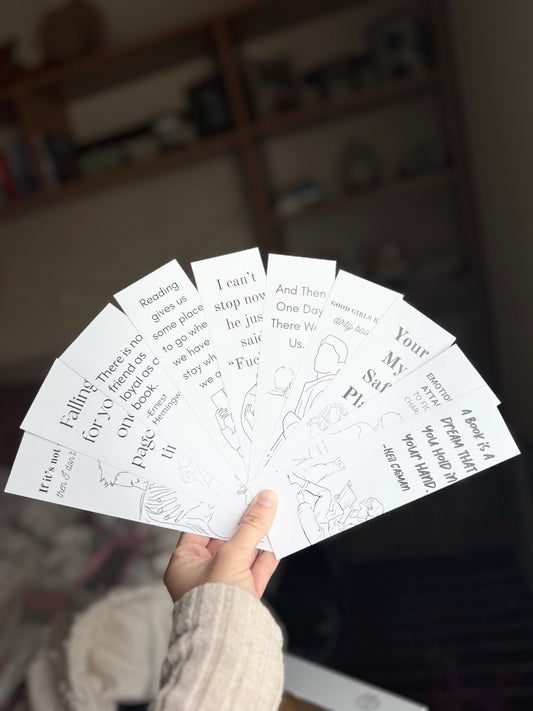 If it's not
then I don't
Falling
for yo
one
page
tim
There is no
friend as
loyal as a
book.
-Ernest
Hemingw
Reading
gives us
some place
to go whe
we have
stay whe
we a
I can't
stop now
he jus
said
"Fuc
And Then
One Day
There W
Us.
GOOD GIRLS R
dirty boo
Your
My
Saf
Pl
EMOTION
ATTA
TO FIC
CHAR
A BOOK IS A
DREAM THAT
YOU HOLD IN
YOUR HAND.
-NEIL GAIMAN